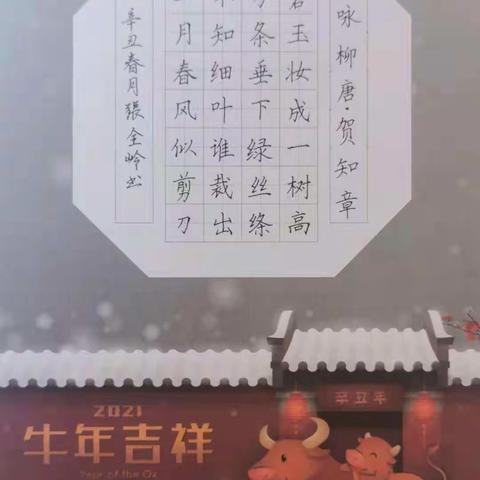 咏柳唐·贺知章
玉妆成一树高
条垂下绿丝绦
知细叶谁裁出
月春风似剪刀
辛丑春月張全岭书
辛丑年
2021
牛年吉祥
Year of the Ox